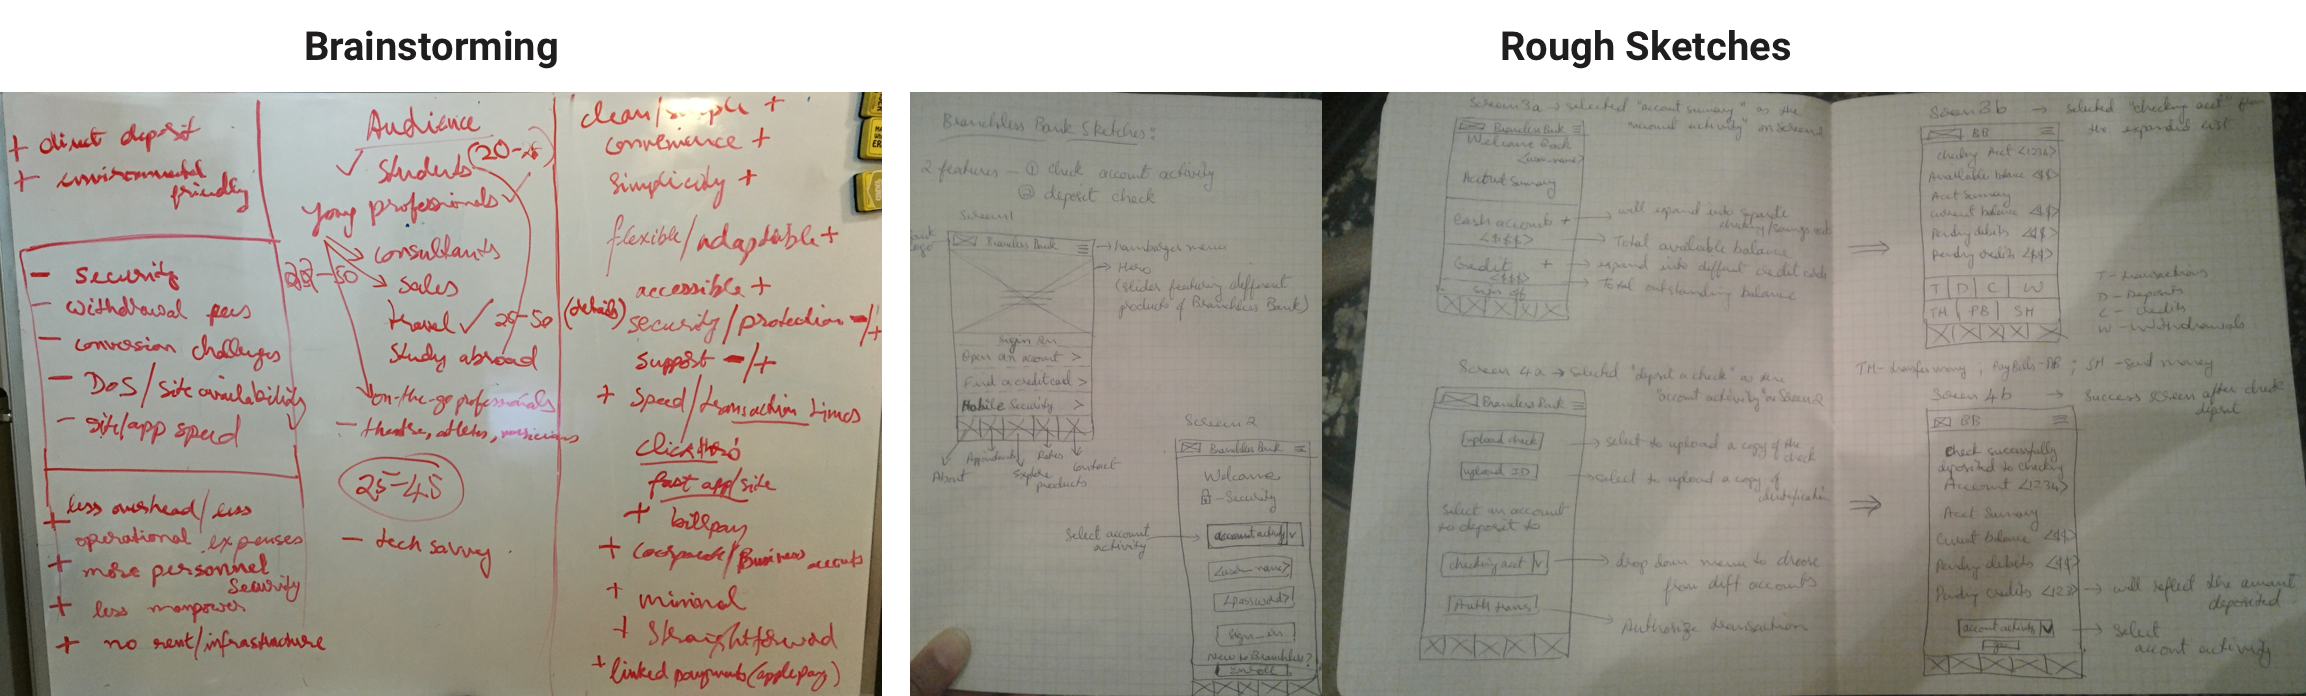 Brainstorming
Rough Sketches
+ direct deposit
+ environmental
friendly
- security
- withdrawal fees
- conversion challenges
- DoS/site availability
- site/app speed
+ less overhead/less
operational expenses
+ more personnel
security
+ less manpower
+ no rent/infrastructure
Audience
✓ Students (20-25)
young professionals ✓
consultants
sales
travel ✓ 25-50
study abroad
on-the-go professionals
- theatre, athletes, musicians
25-45
- tech savvy
clean/simple +
convenience +
simplicity +
flexible/adaptable +
accessible +
(details) security/protection -/+
support -/+
+ speed/transaction times
fast app/site
+ billpay
+ corporate/Business accounts
+ minimal
+ straightforward
+ linked payments (apple pay)
Branchless Bank Sketches:
2 features - ① check account activity
② deposit check
Screen 1
Branchless Bank
hamburger menu
Hero
(slider featuring different
products of Branchless Bank)
Sign In
Open an account >
Find a credit card >
Mobile Security >
About
Appointments
Explore
products
Rates
Contact
Screen 2
Branchless Bank
Welcome
- Security
Select account
activity
account activity
<user_name>
<password>
Sign_in
New to Branchless?
Enroll
Screen 3a → selected "account summary" as the
"account activity" on Screen 2
Branchless Bank
Welcome Back
<user_name>
Account Summary
Cash accounts +
<$$$>
Credit +
<$$$>
Sign off
will expand into separate
checking/savings accts
Total available balance
expand into different credit cards
Total outstanding balance
Screen 3b → selected "checking acct" from
the expanded list
BB
Checking Acct <1234>
Available balance <$$>
Acct Summary
Current balance <$$>
Pending debits <$$>
Pending credits <$$>
T D C W
TM PB SM
T - transactions
D - Deposits
C - Credits
W - Withdrawals
TM - transfer money, Pay Bills - PB; SM - send money
Screen 4a → selected "deposit a check" as the
"account activity" on Screen 2
Branchless Bank
upload check
upload ID
Select an account
to deposit to
checking acct
Auth trans
select to upload a copy of the
check
select to upload a copy of
identification
drop down menu to choose
from diff accounts
Authorize transaction
Screen 4b → Success screen after check
deposit
BB
Check successfully
deposited to checking
Account <1234>
Acct Summary
Current balance <$$>
Pending debits <$$>
Pending credits <123>
account activity
will reflect the amount
deposited
select
account activity